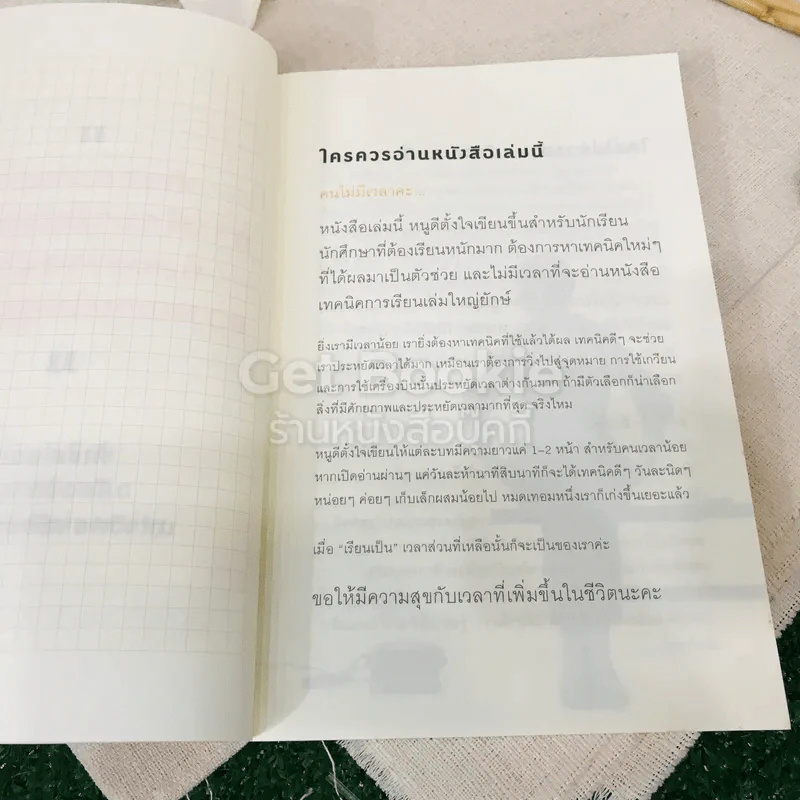 ใครควรอ่านหนังสือเล่มนี้
คนไม่มีเวลาคะ...
หนังสือเล่มนี้ หนูดีตั้งใจเขียนขึ้นสำหรับนักเรียน
นักศึกษาที่ต้องเรียนหนักมาก ต้องการหาเทคนิคใหม่ๆ
ที่ได้ผลมาเป็นตัวช่วย และไม่มีเวลาที่จะอ่านหนังสือ
เทคนิคการเรียนเล่มใหญ่ยักษ์
ยิ่งเรามีเวลาน้อย เรายิ่งต้องหาเทคนิคที่ใช้แล้วได้ผล เทคนิคดีๆ จะช่วย
เราประหยัดเวลาได้มาก เหมือนเราต้องการวิ่งไปสู่จุดหมาย การใช้เกวียน
และการใช้เครื่องบินนั้นประหยัดเวลาต่างกันมาก ถ้ามีตัวเลือกก็น่าเลือก
สิ่งที่มีศักยภาพและประหยัดเวลามากที่สุด จริงไหม
Get Bookie
ร้านหนังสือบุ๊คที
หนูดีตั้งใจเขียนให้แต่ละบทมีความยาวแค่ 1-2 หน้า สำหรับคนเวลาน้อย
หากเปิดอ่านผ่านๆ แค่วันละห้านาทีสิบนาทีก็จะได้เทคนิคดีๆ วันละนิดๆ
หน่อยๆ ค่อยๆ เก็บเล็กผสมน้อยไป หมดเทอมหนึ่งเราก็เก่งขึ้นเยอะแล้ว
เมื่อ “เรียนเป็น” เวลาส่วนที่เหลือนั้นก็จะเป็นของเราค่ะ
ขอให้มีความสุขกับเวลาที่เพิ่มขึ้นในชีวิตนะคะ